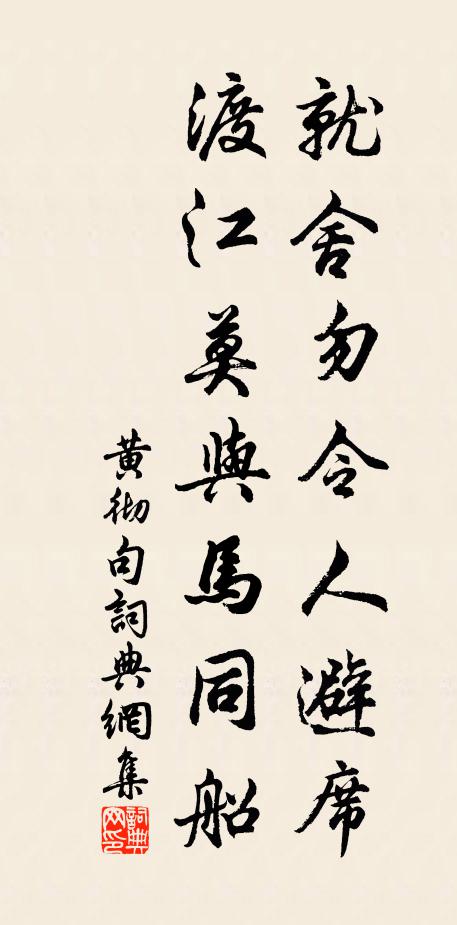 就舍勿令人避席
渡江莫與馬同船
黄彻句詞典網集
詞典網印